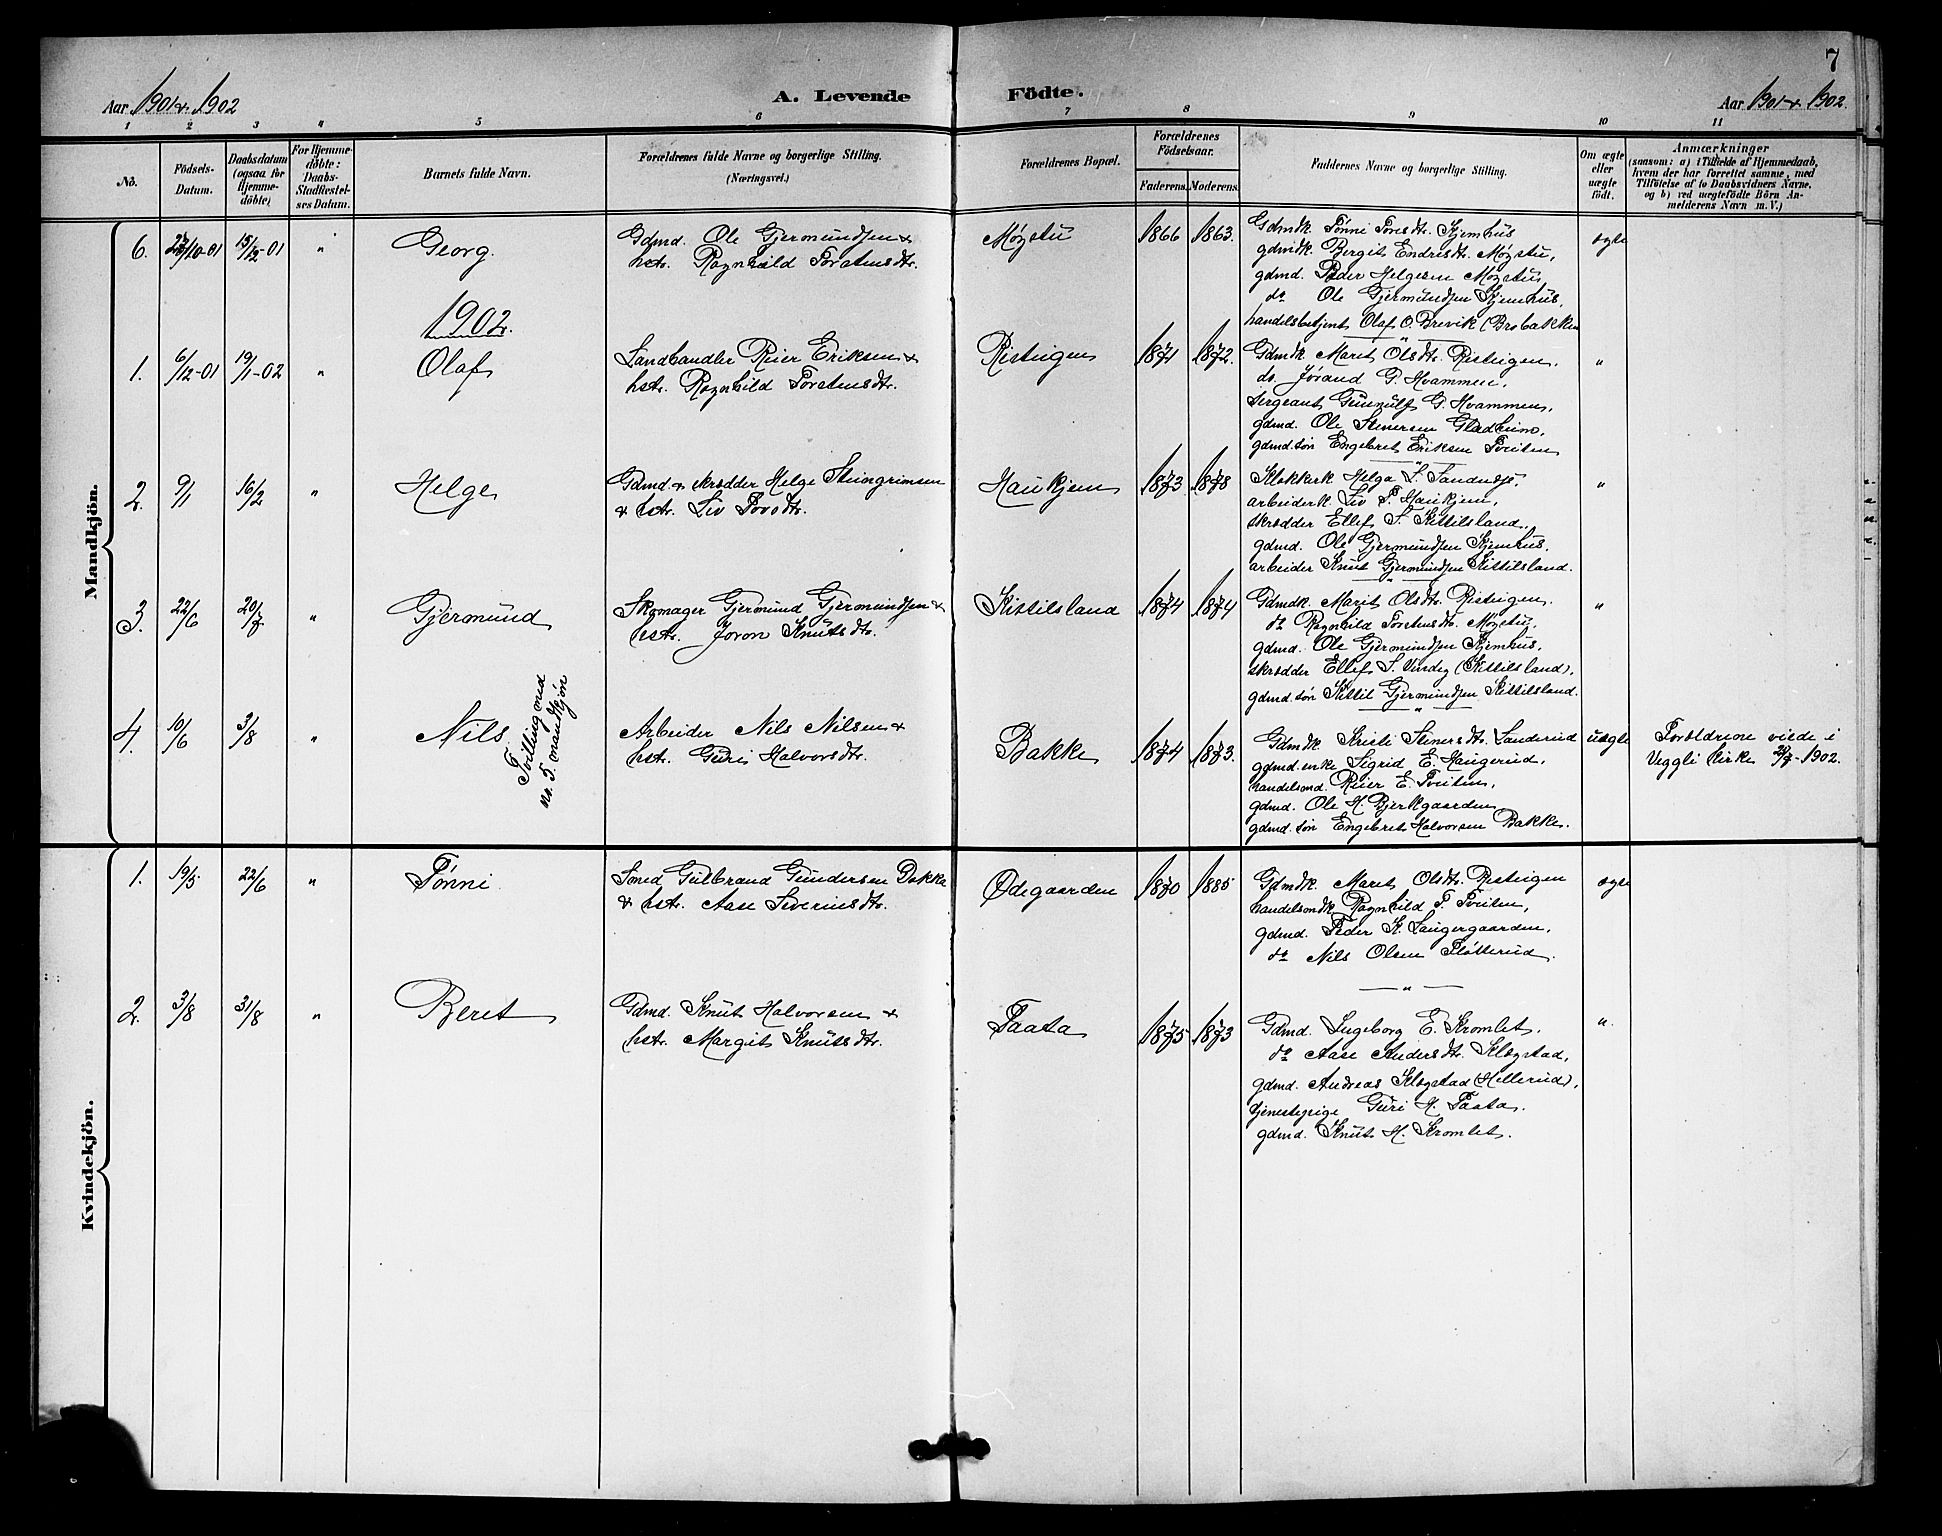 7
Aar 1901 & 1902
A. Levende Födte.
Aar 1901 & 1902.
1 2 3 4 5 6 7 8 9 10 11
No.
Födsels-
Datum.
Daabsdatum
(ogsaa for
Hjemme-
döbte)
For Hjemme-
döbte:
Daabs-
Stadfæstel-
ses Datum.
Barnets fulde Navn.
Forældrenes fulde Navne og borgerlige Stilling.
(Næringsvei.)
Forældrenes Bopæl.
Forældrenes
Födselsaar.
Faderens. Moderens.
Faddernes Navne og borgerlige Stilling.
Om ægte
eller
uægte
født.
Anmærkninger
(saasom: a) i Tilfælde af Hjemmedaab,
hvem der har forrettet samme, med
Tilföielse af to Daabsvidners Navne,
og b) ved uægtefödte Börn An-
melderens Navn m. V.)
Mandkjön.
6. /10-01 15/12-01 " Georg.
Gdmd. Ole Gjermundsen &
hstr. Ragnhild Torstensdtr.
Møgstu 1866 1863.
Gdmdk. Tønni Toresdtr. Kjemhus
gdmdk. Bergit Endresdtr. Møgstu,
gdmd. Peder Helgesen Møgstu,
do Ole Gjermundsen Kjemhus,
handelsbetjent Olaf O. Brevik (Brobakken
ægte
1902.
1. 6/12-01 19/1-02 " Olaf
Landhandler Reier Eriksen &
hstr. Ragnhild Torstensdtr.
Risteigen 1871 1872.
Gdmdk. Marit Olsdtr. Risteigen.
do. Jørand G. Hvammen,
sergeant Gunnulf G. Hvammen,
gdmd. Ole Stenersen Gladheim,
gdmd. søn Engebret Eriksen Tveiten
"
2. 9/1 16/2 " Helge
Gdmd. & skrædder Helge Steingrimsen
& hstr. Liv Tovsdtr.
Haukjem 1873 1878
Klokkerk. Helga L. Sandusjø,
arbeiderk. Liv T. Haukjem,
skrædder Ellef S. Kittilsland,
gdmd. Ole Gjermundsen Kjemhus.
arbeider Knut Gjermundsen Kittilsland.
"
3. 22/6 20/7 " Gjermund
Skomager Gjermund Gjermundsen &
hstr. Joron Knutsdtr.
Kittilsland 1874 1874
Gdmdk. Marit Olsdtr. Risteigen.
do Ragnhild Torstensdtr. Møgstu,
gdmd. Ole Gjermundsen Kjemhus,
skrædder Ellef S. Vindeg (Kittilsland),
gdmd. søn Kittil Gjermundsen Kittilsland.
"
4. 10/6 3/8 " Nils
Tvilling med
no. 5. mandkjøn
Arbeider Nils Nilsen &
hstr. Guri Halvorsdtr.
Bakke 1874 1873.
Gdmdk. Kristi Steinersdtr. Landerud
gdmd. enke Sigrid E. Haugerud,
handelsmd. Reier E. Tveiten,
gdmd. Ole H. Bjerkgaarden
gdmd. søn Engebret Halvorsen Bakke.
uægte
Forældrene viede i
Veggli kirke 20/7-1902.
Kvindekjön.
1. 19/5 22/6 " Tønni
Smed Gulbrand Gundersen Bakke
& hstr. Aase Severinsdtr.
Ødegaarden 1870 1885
Gdmdk. Marit Olsdtr. Risteigen
handelsmdk Ragnhild T. Tveiten,
gdmd. Peder K. Laugergaarden,
do Nils Olsen Fløtterud.
ægte
2. 3/8 31/8 " Beret
Gdmd. Knut Halvorsen &
hstr. Margit Knutsdtr.
Taata 1875 1873
Gdmd. Ingeborg E. Kromlet.
do Aase Andersdtr. Klægstad,
gdmd. Andreas Klægstad (Hellerud),
tjenestepige Guri H. Taata.
gdmd. Knut H. Kromlet.
"